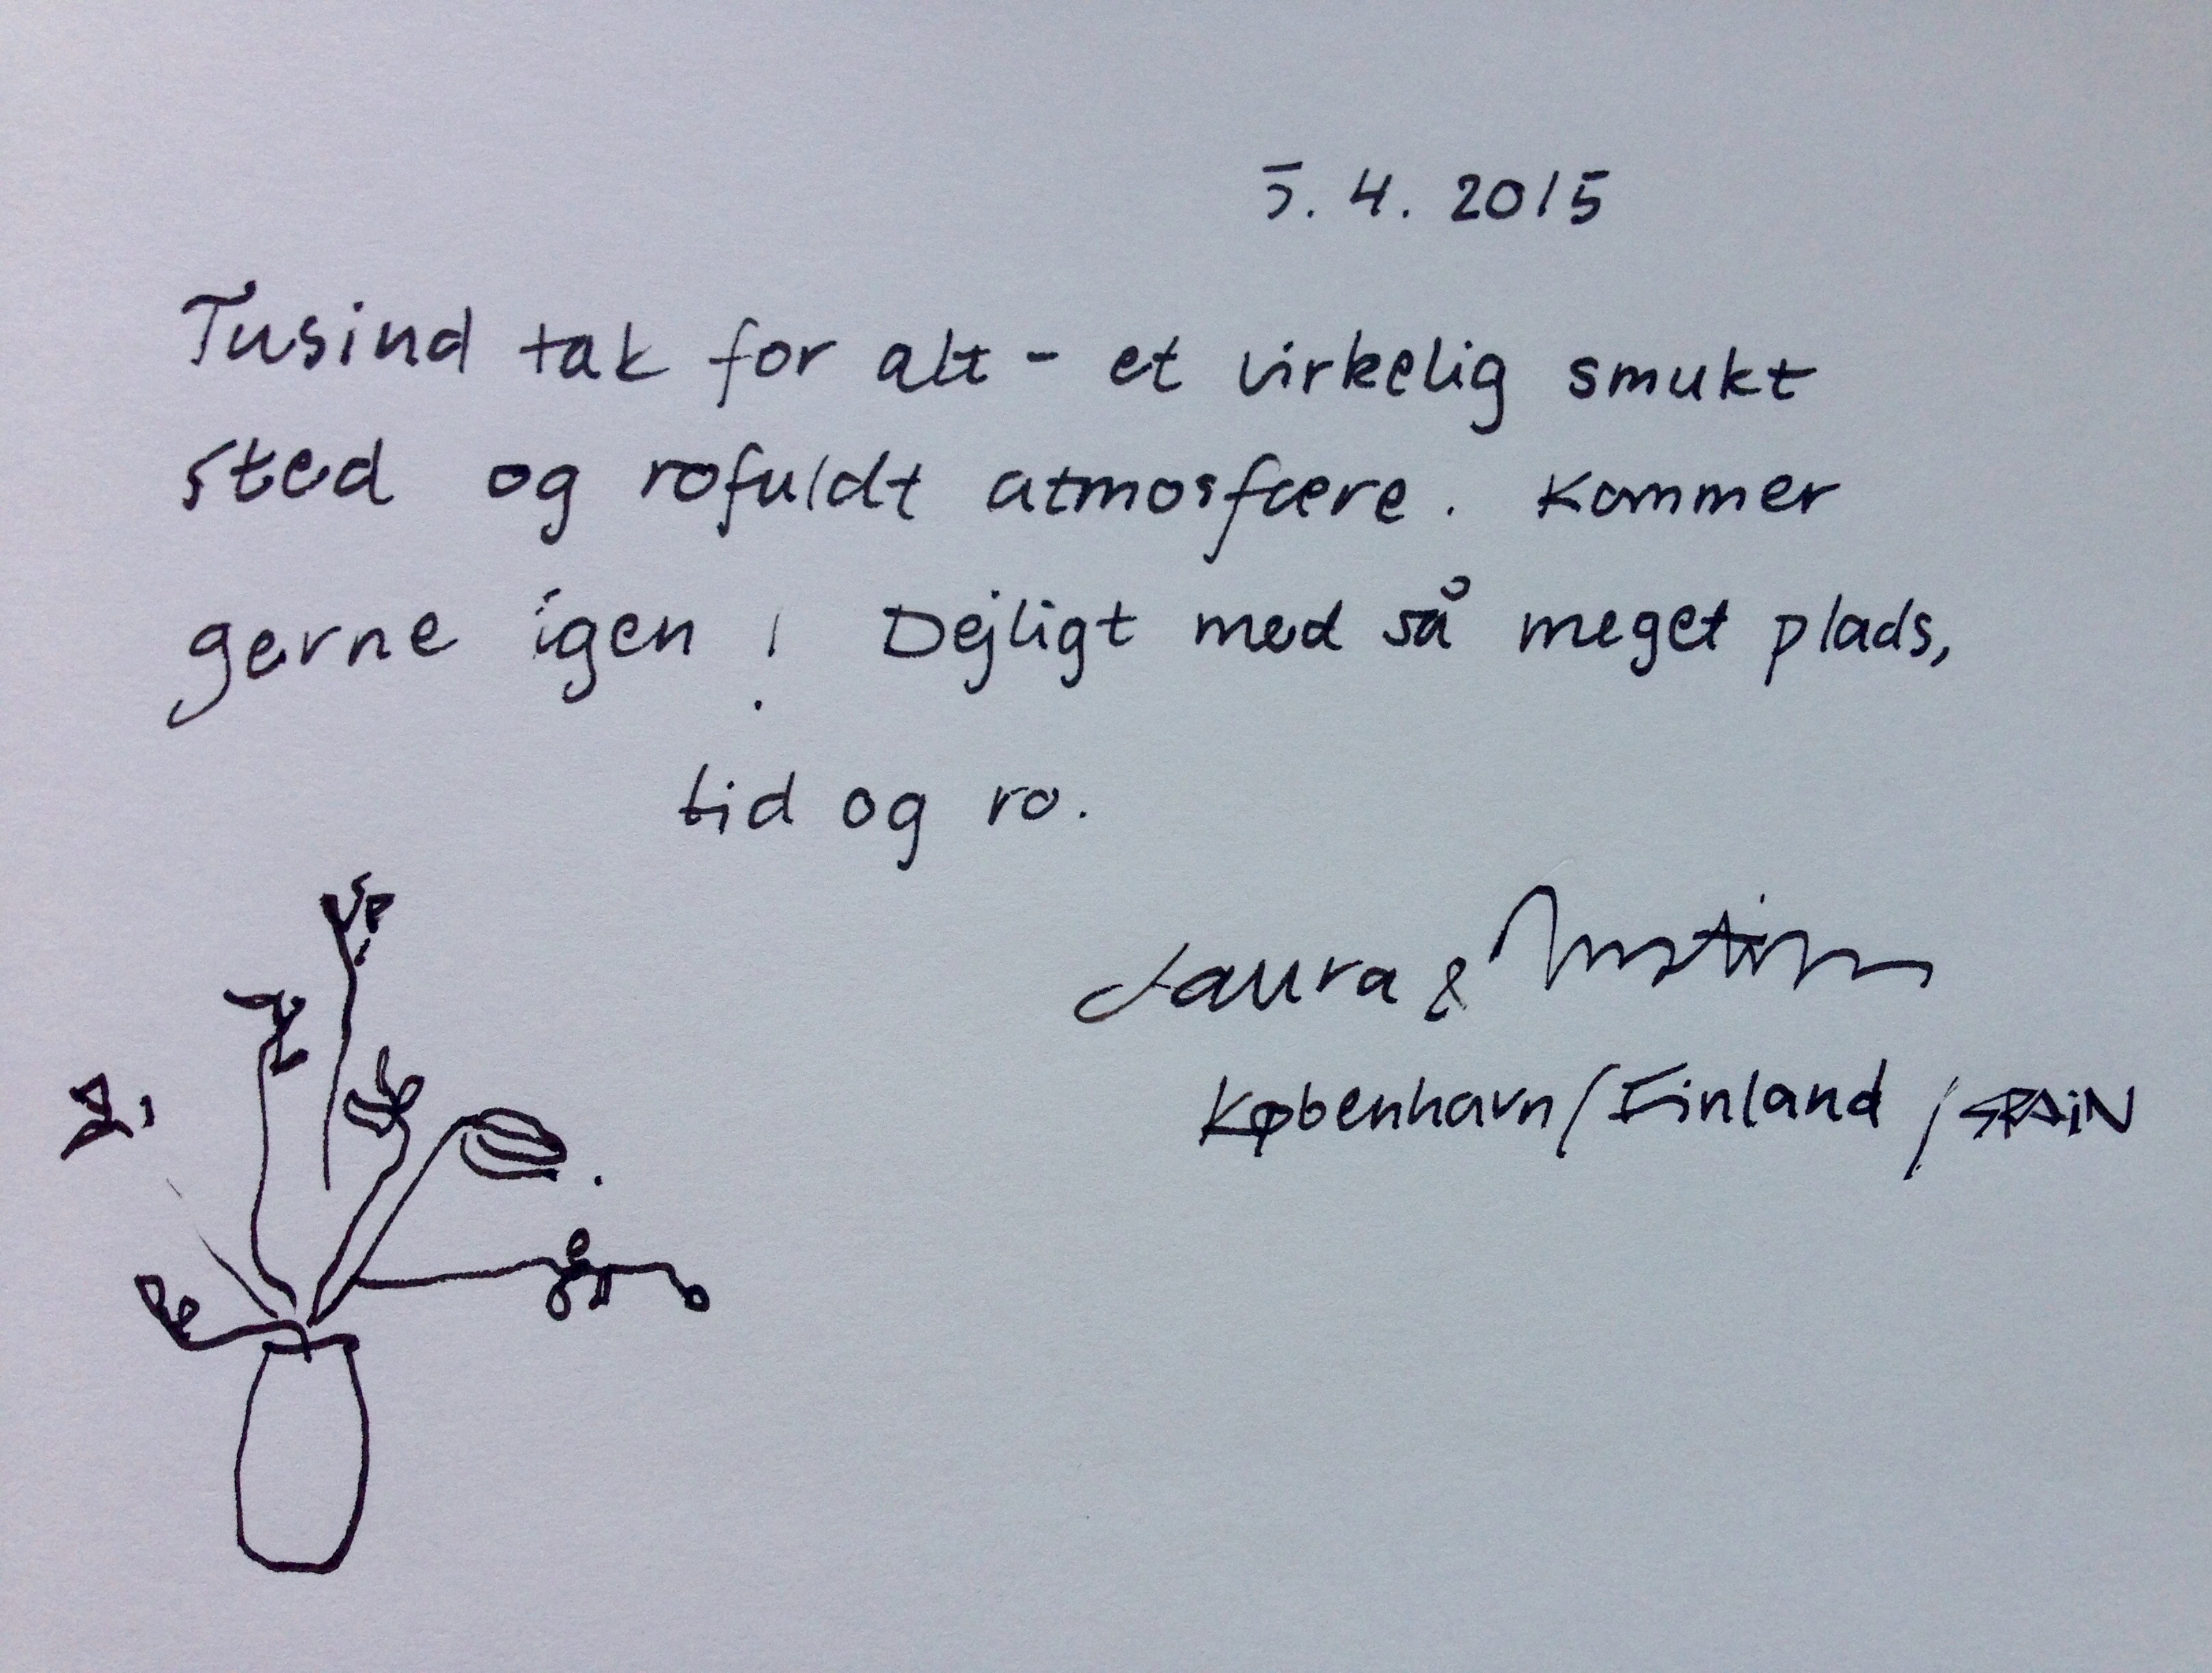 5. 4. 2015
Tusind tak for alt - et virkelig smukt
sted og rofuldt atmosfære. Kommer
gerne igen! Dejligt med så meget plads,
tid og ro.
Laura &
København/Finland/SPAiN